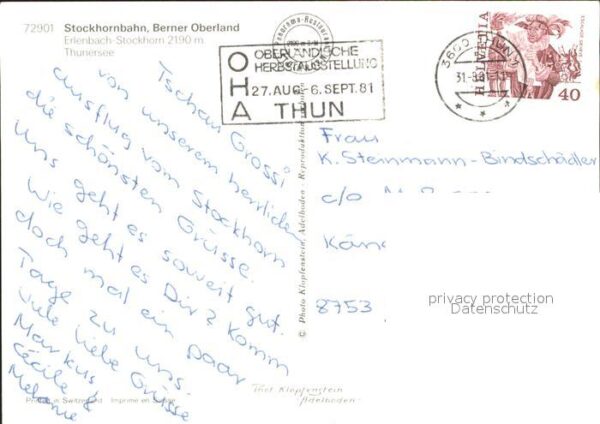 72901 Stockhornbahn, Berner Oberland
Erlenbach-Stockhorn 2190 m.
Thunersee
Tschau Grossi
von unserem herrlichen
Ausflug vom Stockhorn
die schönsten Grüsse.
Uns geht es soweit gut.
Wie geht es Dir? Komm
doch mal ein paar
Tage zu uns.
Viele liebe Grüsse
Markus
Cécile &
Melanie
Printed in Switzerland Imprimé en Suisse
Panorama-Restaurant
OHA
OBERLÄNDISCHE
HERBSTAUSSTELLUNG
27. AUG.-6. SEPT. 81
THUN
3600 THUN 1
31.-8.81
HELVETIA
40
© Photo Klopfenstein, Adelboden - Reproduktion
Phot. Klopfenstein
Adelboden
Frau
K. Steinmann-Bindschädler
c/o
8753
privacy protection
Datenschutz